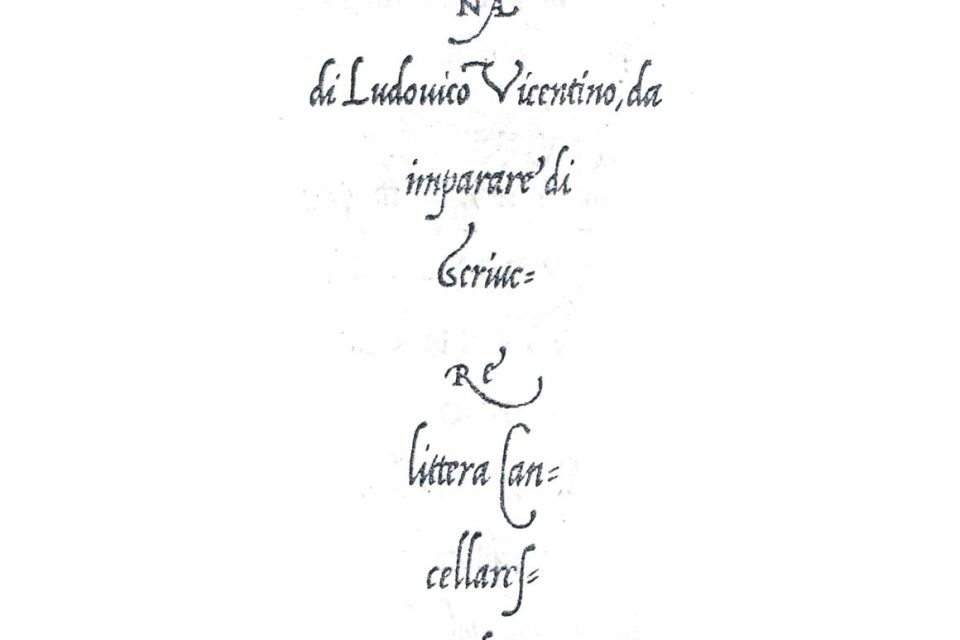 NA
di Ludouico Vicentino, da
imparare di
Scriue=
RE
littera Can=
cellares=